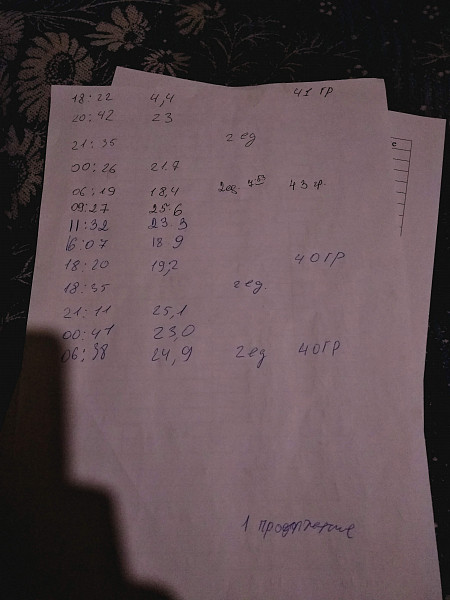 18:22 4,4 41 гр
20:42 23
21:35 2 ед
00:26 21.7
06:19 18,4 2ед. 43 гр.
09:27 25.6
11:32 23.3
16:07 18.9
18:20 19,2 40ГР
18:35 2 ед.
21:11 25,1
00:41 23,0
06:38 24,9 2 ед 40ГР
1 продолжение